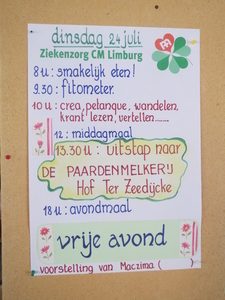 dinsdag 24 juli
Ziekenzorg CM Limburg
8u: smakelijk eten!
9.30: fitometer.
10u: crea, petanque, wandelen,
krant lezen, vertellen.......
12: middagmaal
13.30u: uitstap naar
DE PAARDENMELKERIJ
Hof Ter Zeedijcke
18u: avondmaal
vrije avond
voorstelling van Maczima (